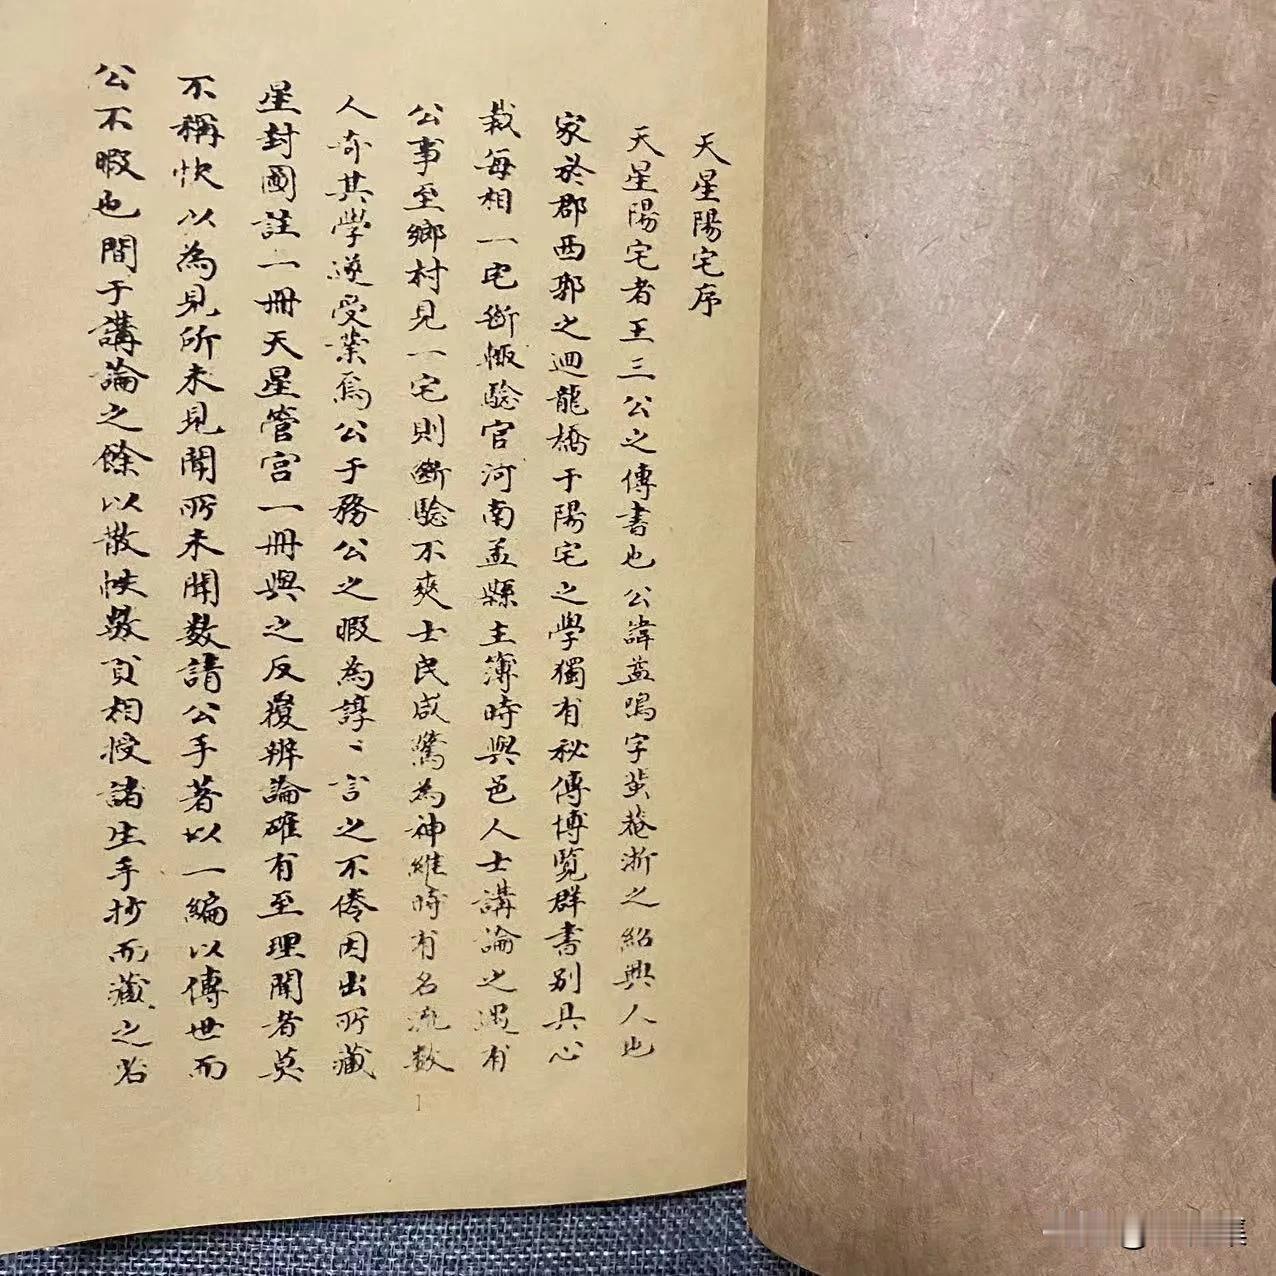 天星陽宅序
天星陽宅者王三公之傳書也公諱益鳴字蜚菴浙之紹興人也
家於郡西郭之迴龍橋于陽宅之學獨有秘傳博覽群書別具心
裁每相一宅斷輙驗官河南孟縣主簿時與邑人士講論之遇有
公事至鄉村見一宅則斷驗不爽士民咸驚為神維時有名流數
人奇其學遂受業焉公于務公之暇為諄〻言之不倦因出所藏
星封圖註一冊天星管宮一冊與之反覆辨論確有至理聞者莫
不稱快以為見所未見聞所未聞数請公手著以一編以傳世而
公不暇也間于講論之餘以散帙數頁相授諸生手抄而藏之若